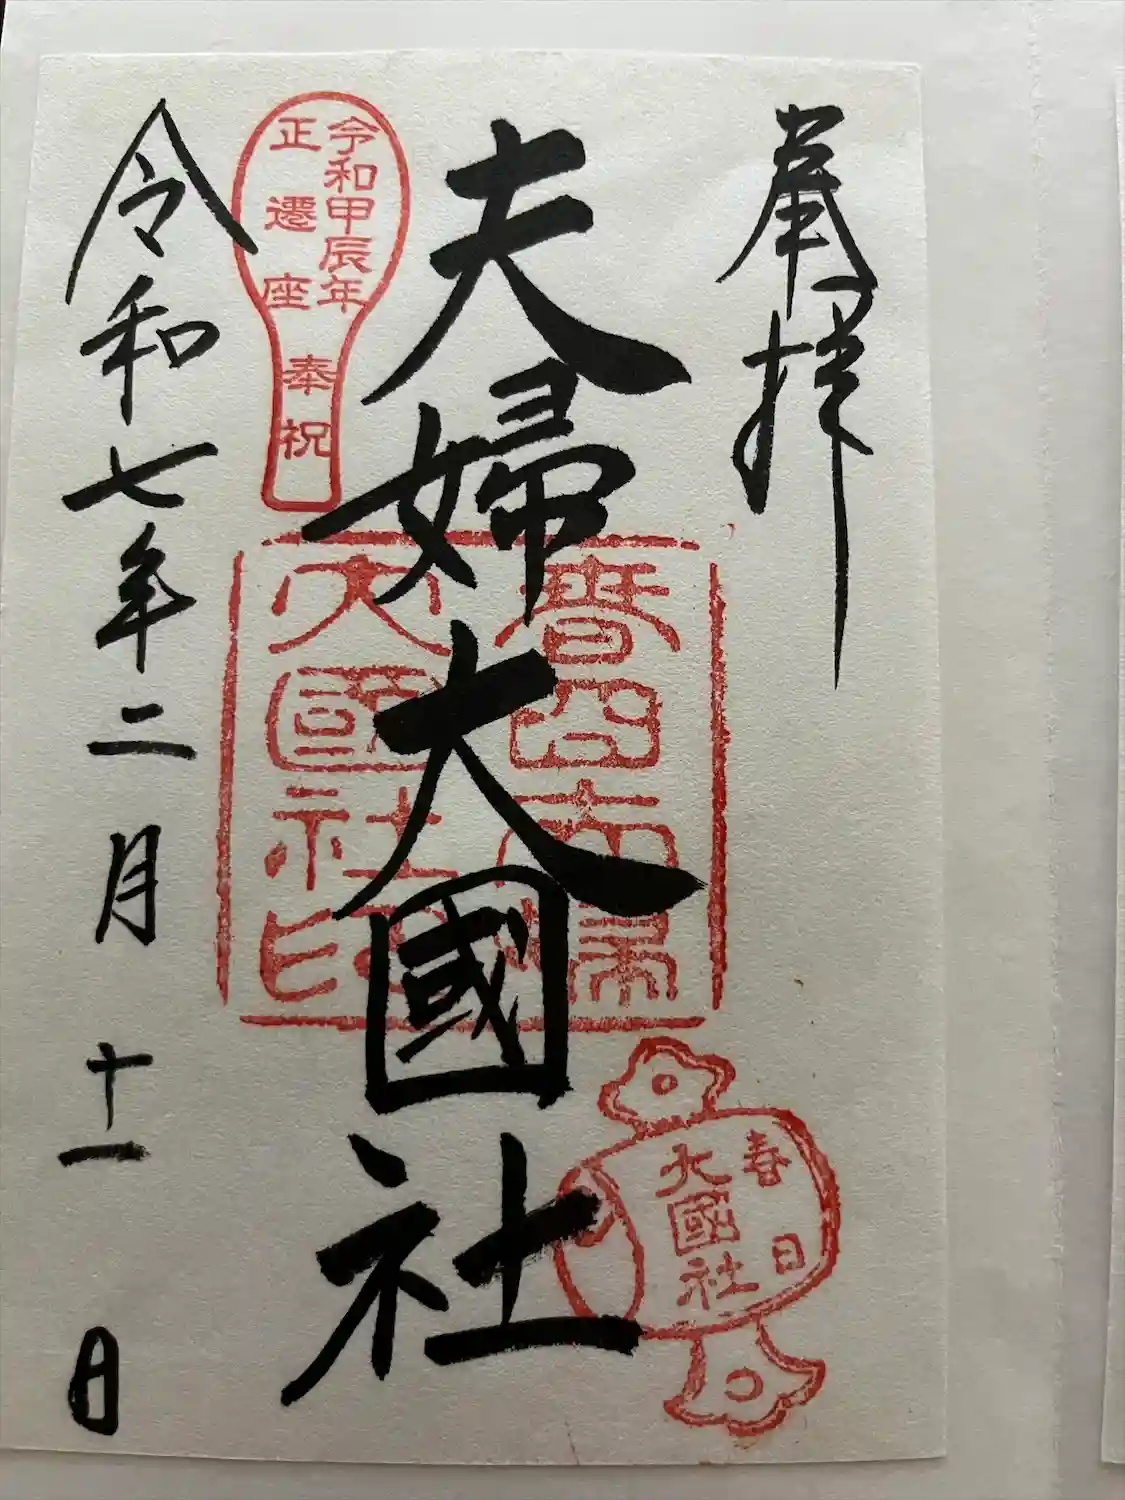 奉拝
夫婦大國社
令和甲辰年
正遷座
奉祝
春日夫婦
大國社印
春日
大國社
令和七年二月十一日